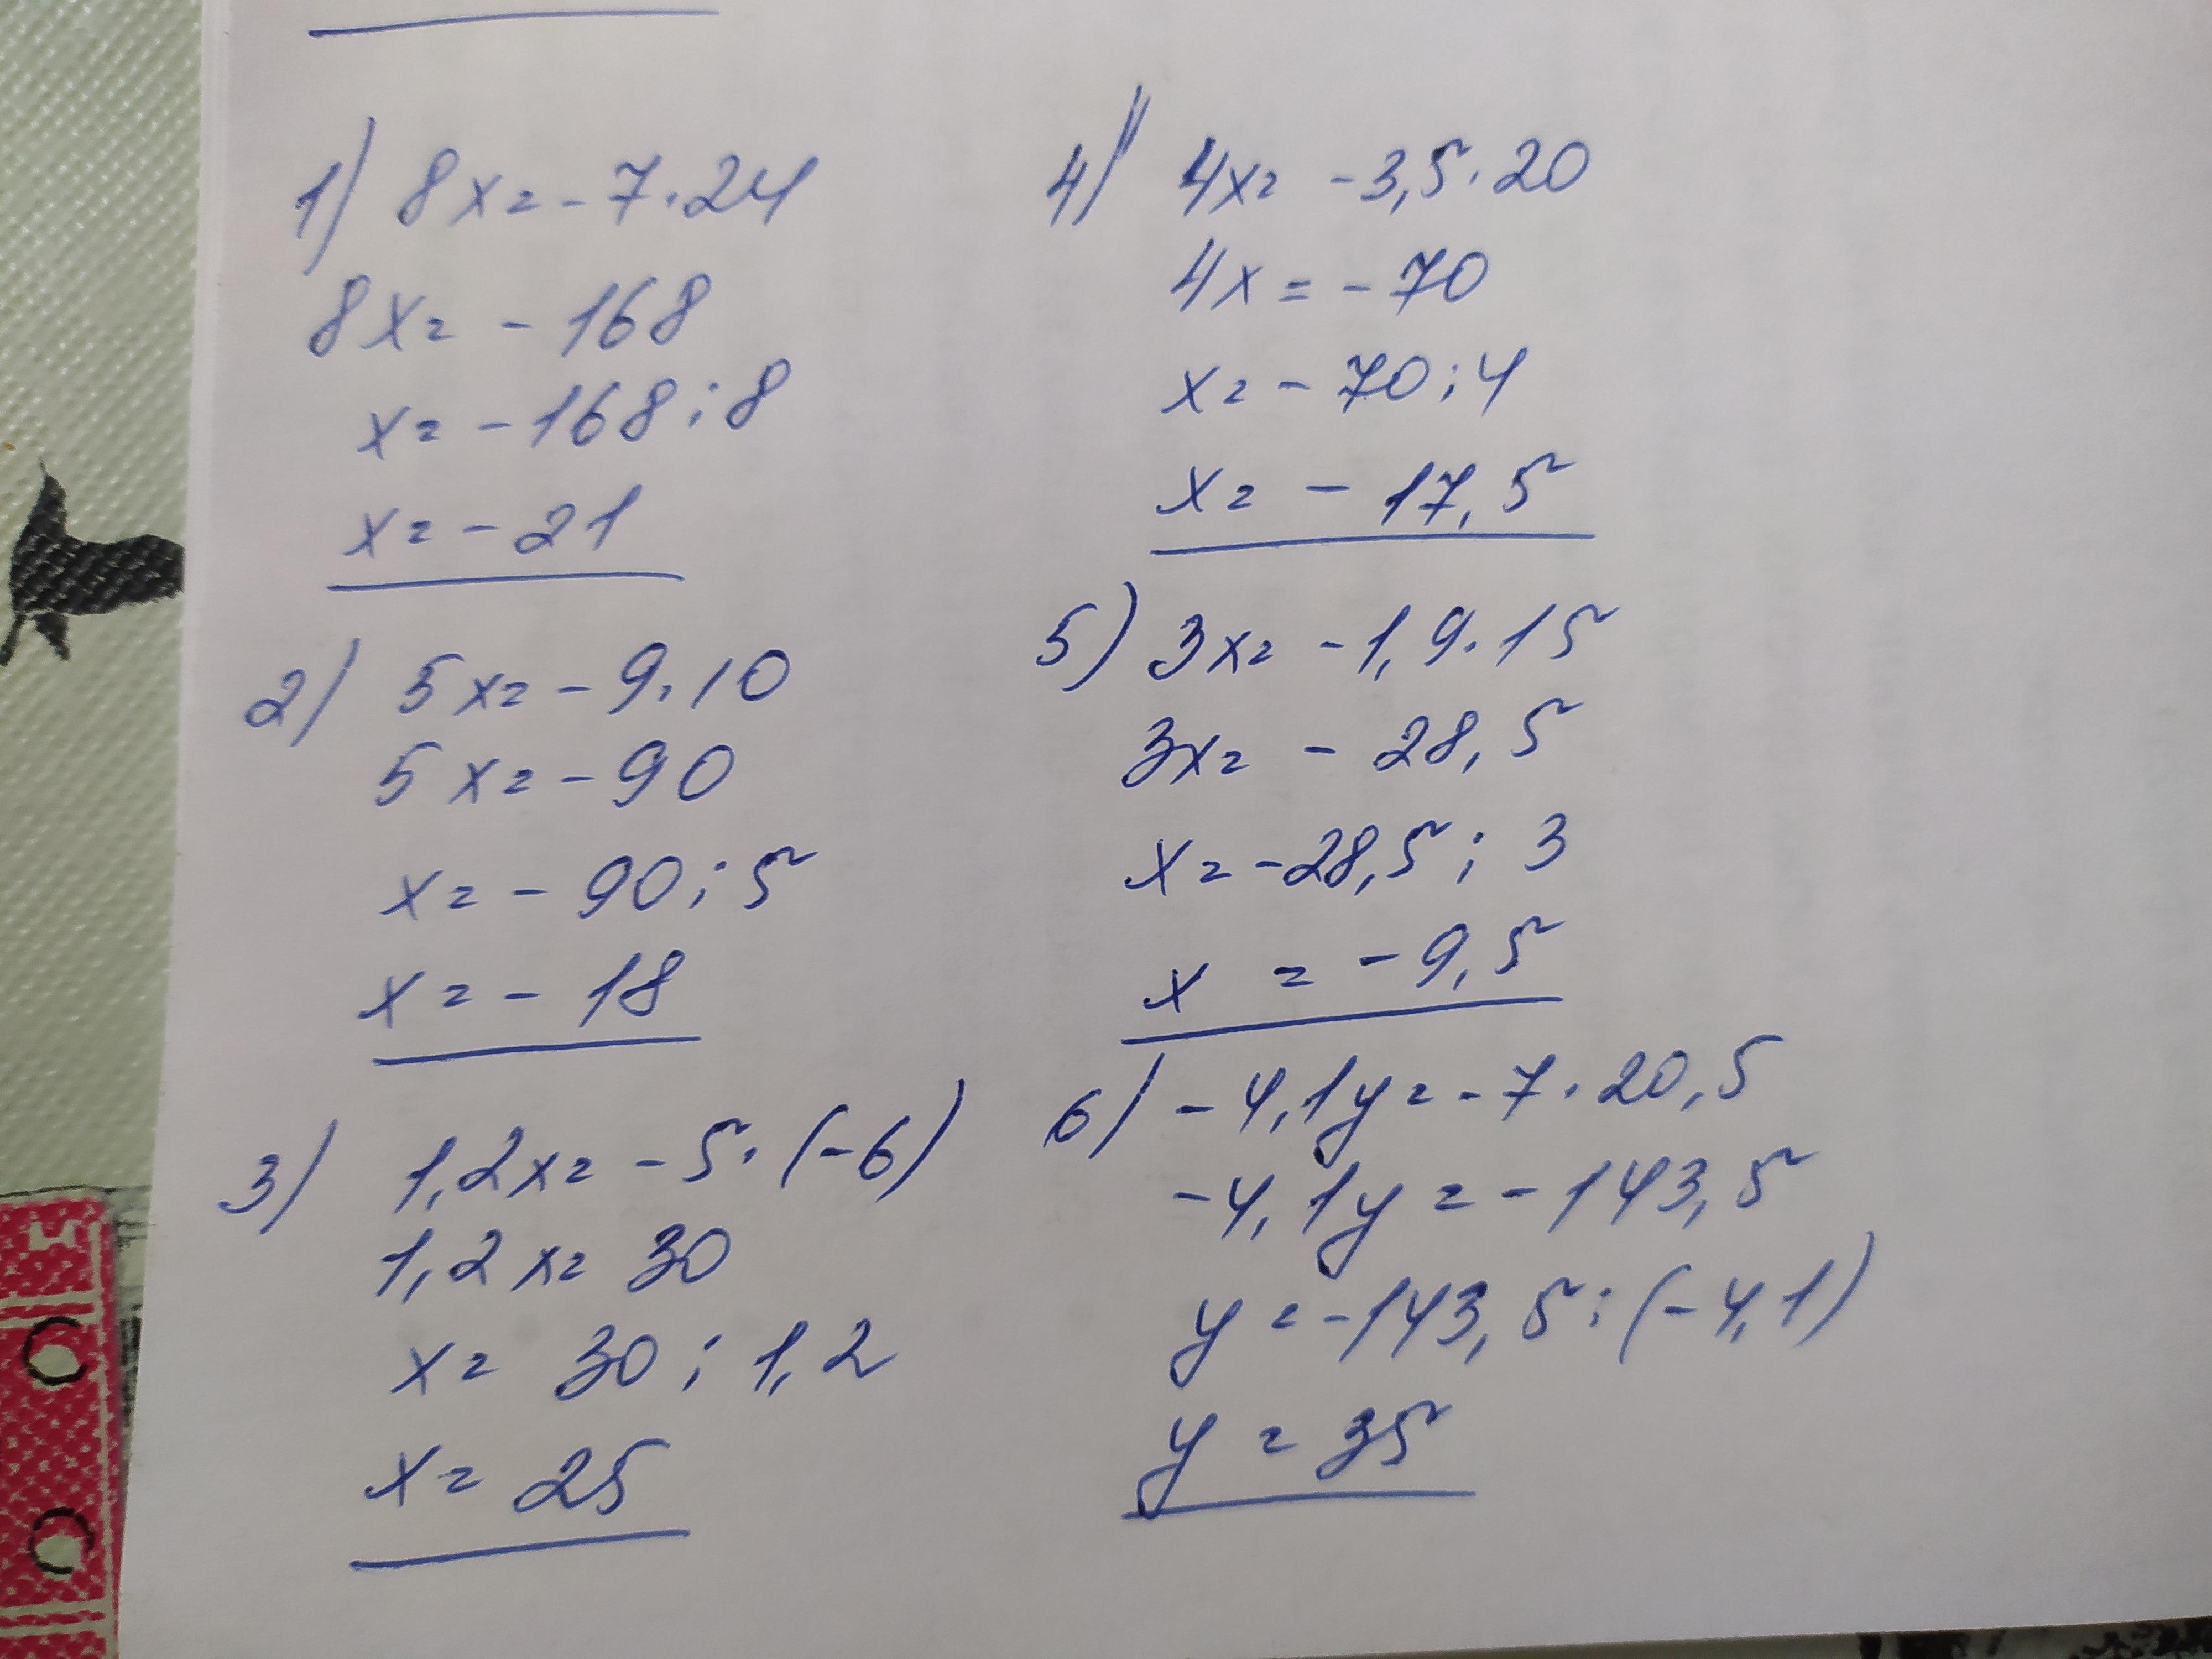 1) 8x = -7·24
8x = -168
x = -168:8
x = -21
2) 5x = -9·10
5x = -90
x = -90:5
x = -18
3) 1,2x = -5·(-6)
1,2x = 30
x = 30:1,2
x = 25
4) 4x = -3,5·20
4x = -70
x = -70:4
x = -17,5
5) 3x = -1,9·15
3x = -28,5
x = -28,5:3
x = -9,5
6) -4,1y = -7·20,5
-4,1y = -143,5
y = -143,5:(-4,1)
y = 35